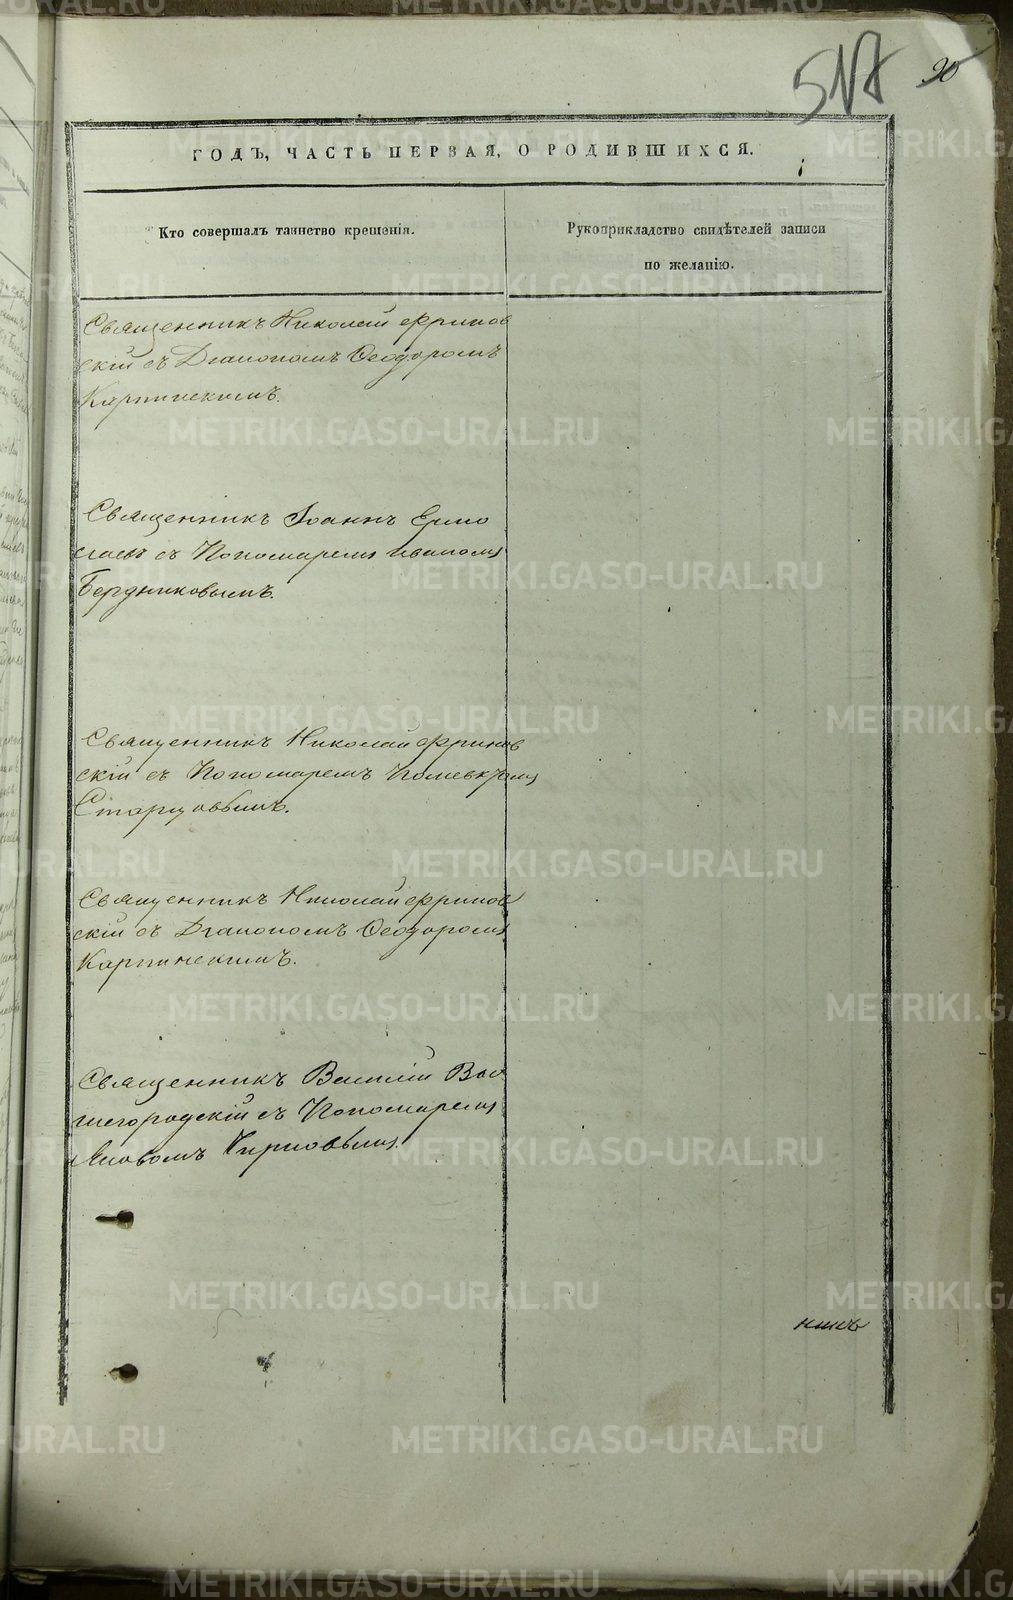 517 90
ГОДЪ, ЧАСТЬ ПЕРВАЯ, О РОДИВШИХСЯ.
Кто совершалъ таинство крещенія.
Рукоприкладство свидѣтелей записи
по желанію.
Священникъ Николай Фринов
скій съ Діакономъ Ѳеодоромъ
Карпинскимъ.
Священникъ Іоаннъ Ермо
лаевъ съ Пономаремъ Иваномъ
Бердниковымъ.
Священникъ Николай Фринов
скій съ Пономаремъ
Старцовымъ.
Священникъ Николай Фринов
скій съ Діакономъ Ѳеодоромъ
Карпинскимъ.
Священникъ Василій
съ Пономаремъ
Яковомъ
METRIKI.GASO-URAL.RU